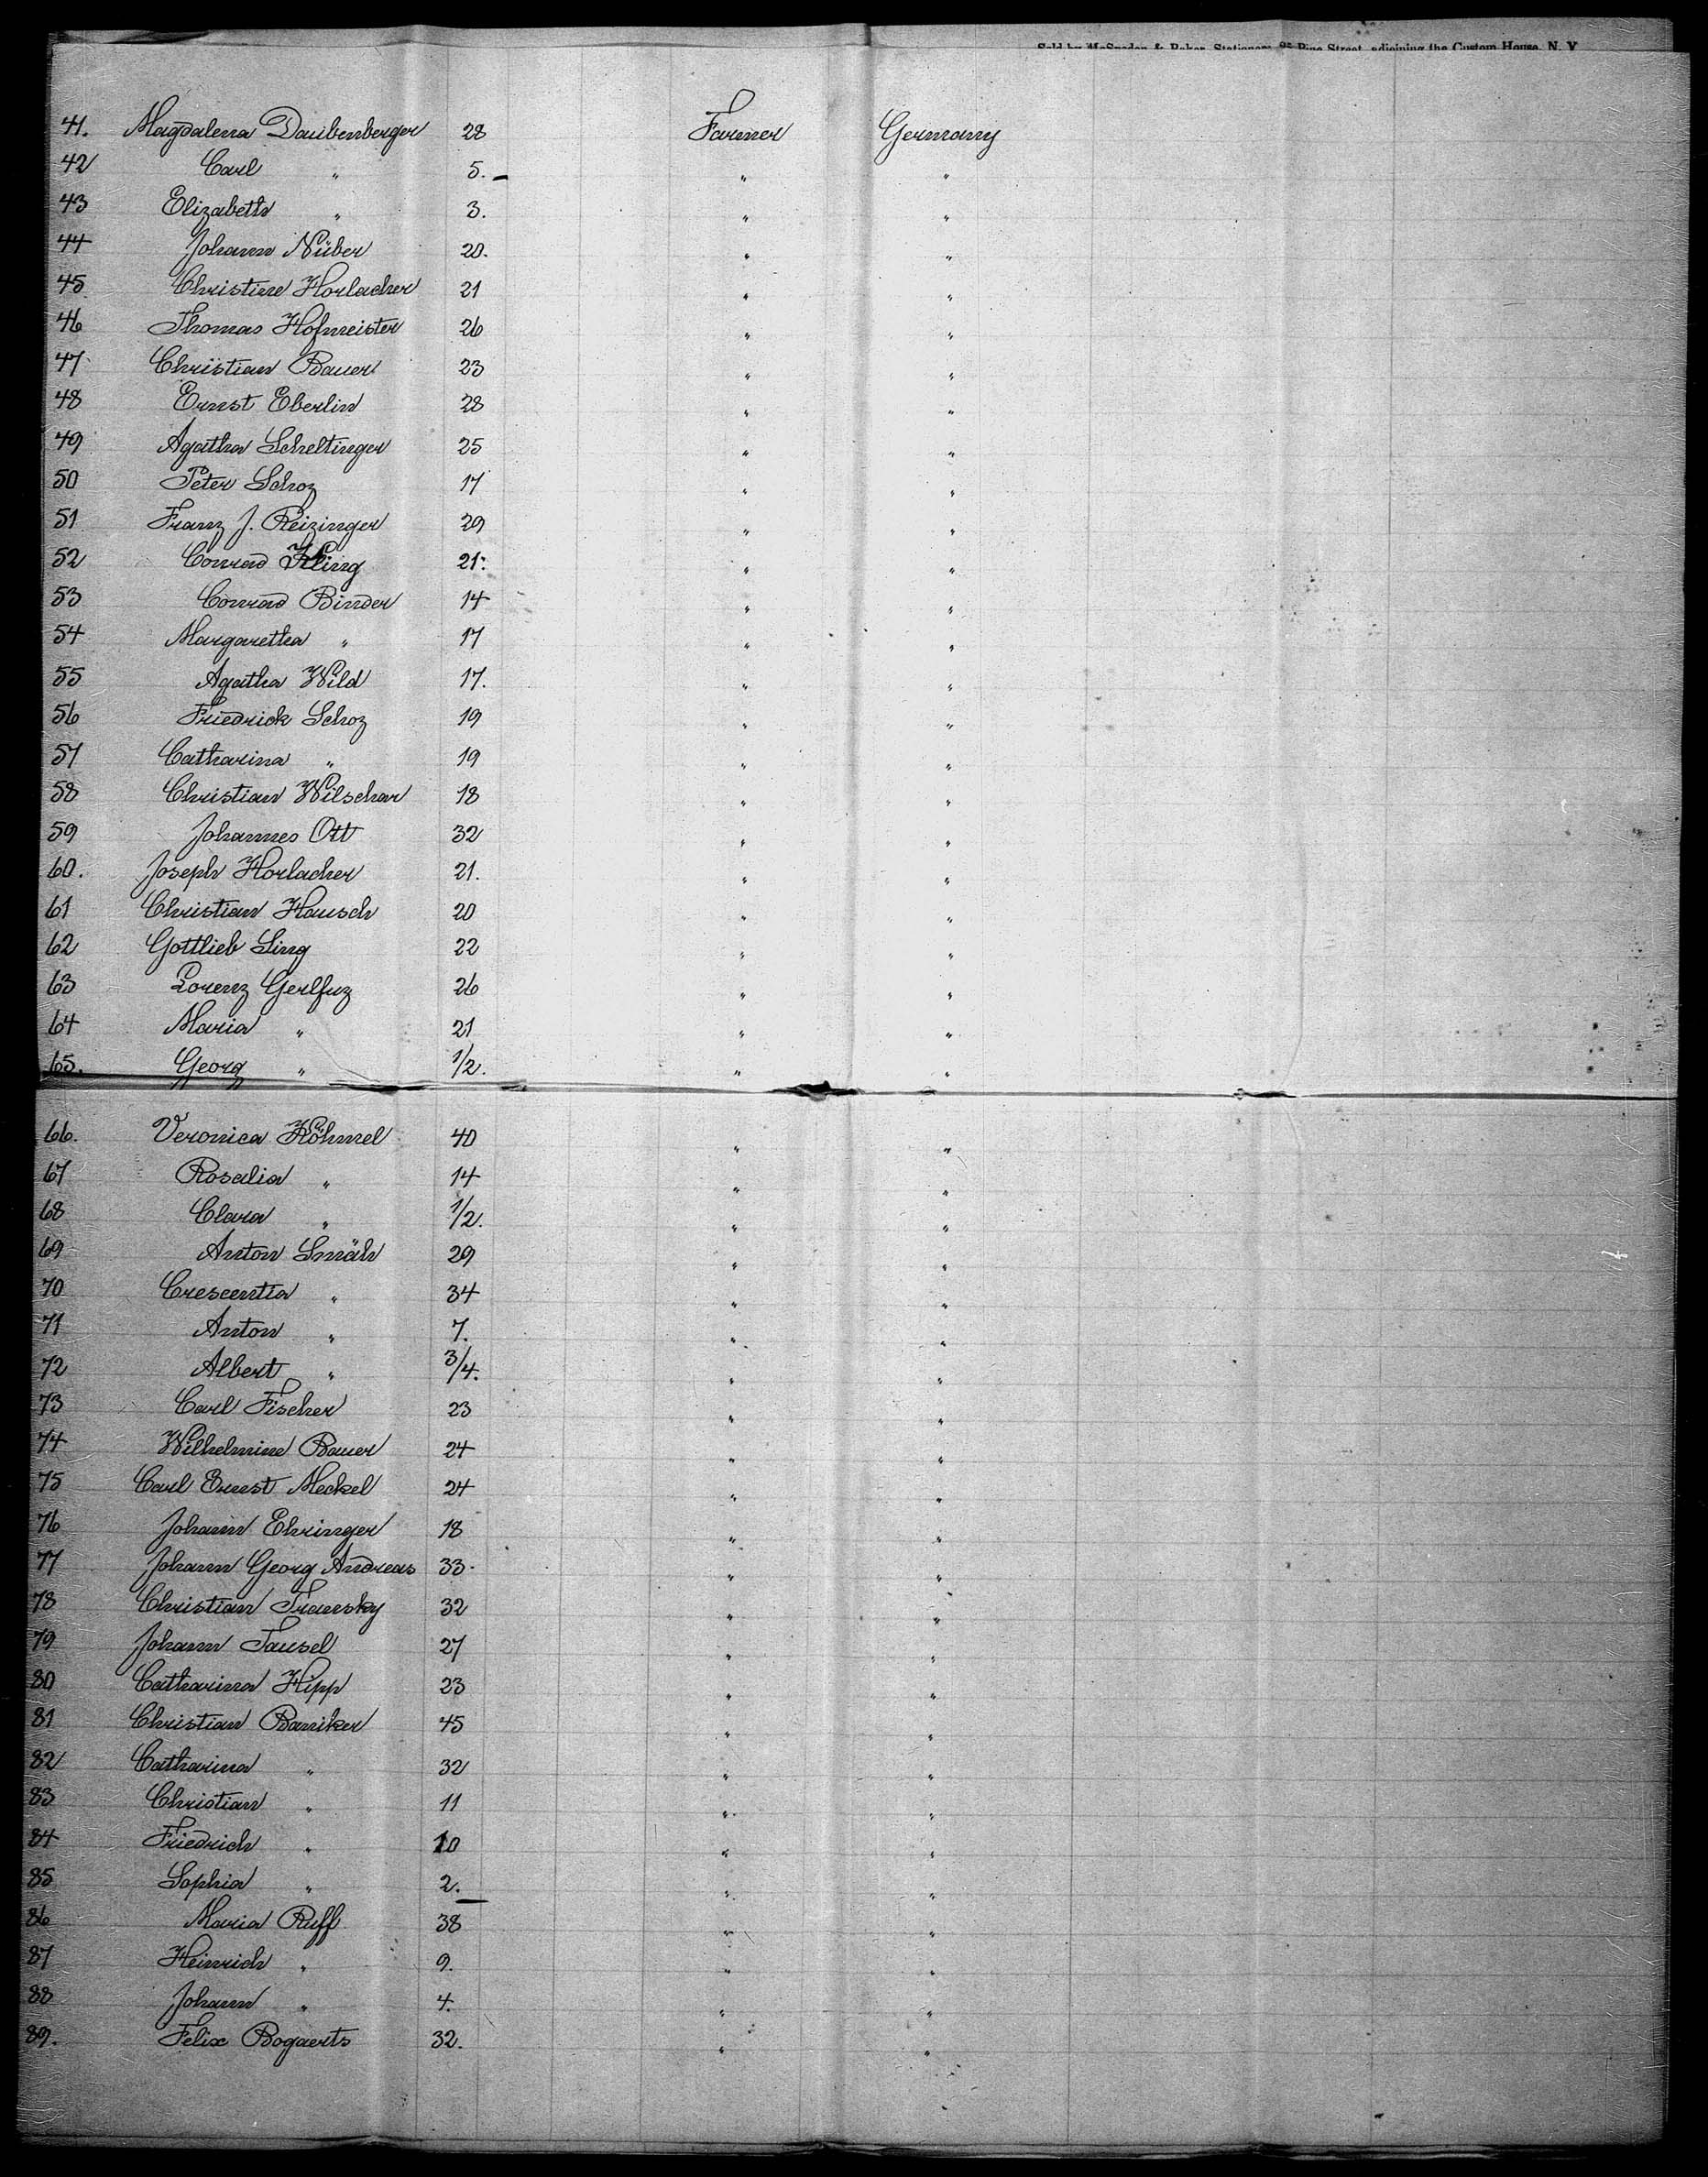 Sold by McSpedon & Baker, Stationers, 25 Pine Street, adjoining the Custom House, N. Y.
41. Magdalena Daubenberger 28 Farmer Germany
42 Carl " 5. " "
43 Elizabeth " 3. " "
44 Johann Nüber 20. " "
45 Christine Horlacher 21 " "
46 Thomas Hofmeister 26 " "
47 Christian Bauer 23 " "
48 Ernst Eberlin 28 " "
49 Agatha Scheltinger 25 " "
50 Peter Schoz 17 " "
51 Franz J. Reizinger 29 " "
52 Conrad Kling 21. " "
53 Conrad Binder 14 " "
54 Margaretha " 17 " "
55 Agatha Wild 17. " "
56 Friedrick Schoz 19 " "
57 Catharina " 19 " "
58 Christian Wilschar 18 " "
59 Johannes Ott 32 " "
60. Joseph Horlacher 21. " "
61 Christian Hausch 20 " "
62 Gottlieb Ling 22 " "
63 Lorenz Gerlfuz 26 " "
64 Maria " 21 " "
65. Georg " 1/2. " "
66. Veronica Köhmel 40 " "
67 Rosalia " 14 " "
68 Clara " 1/2. " "
69 Anton Smäh 29 " "
70 Crescentia " 34 " "
71 Anton " 7. " "
72 Albert " 3/4. " "
73 Carl Fischer 23 " "
74 Wilhelmine Bauer 24 " "
75 Carl Ernst Meckel 24 " "
76 Johann Ehringer 18 " "
77 Johann Georg Andreas 33. " "
78 Christian Transky 32 " "
79 Johann Tausel 27 " "
80 Catharina Hipp 23 " "
81 Christian Baniker 45 " "
82 Catharina " 32 " "
83 Christian " 11 " "
84 Friedrich " 10 " "
85 Sophia " 2. " "
86 Maria Ruff 38 " "
87 Heinrich " 9. " "
88 Johann " 4. " "
89. Felix Bogaerts 32. " "